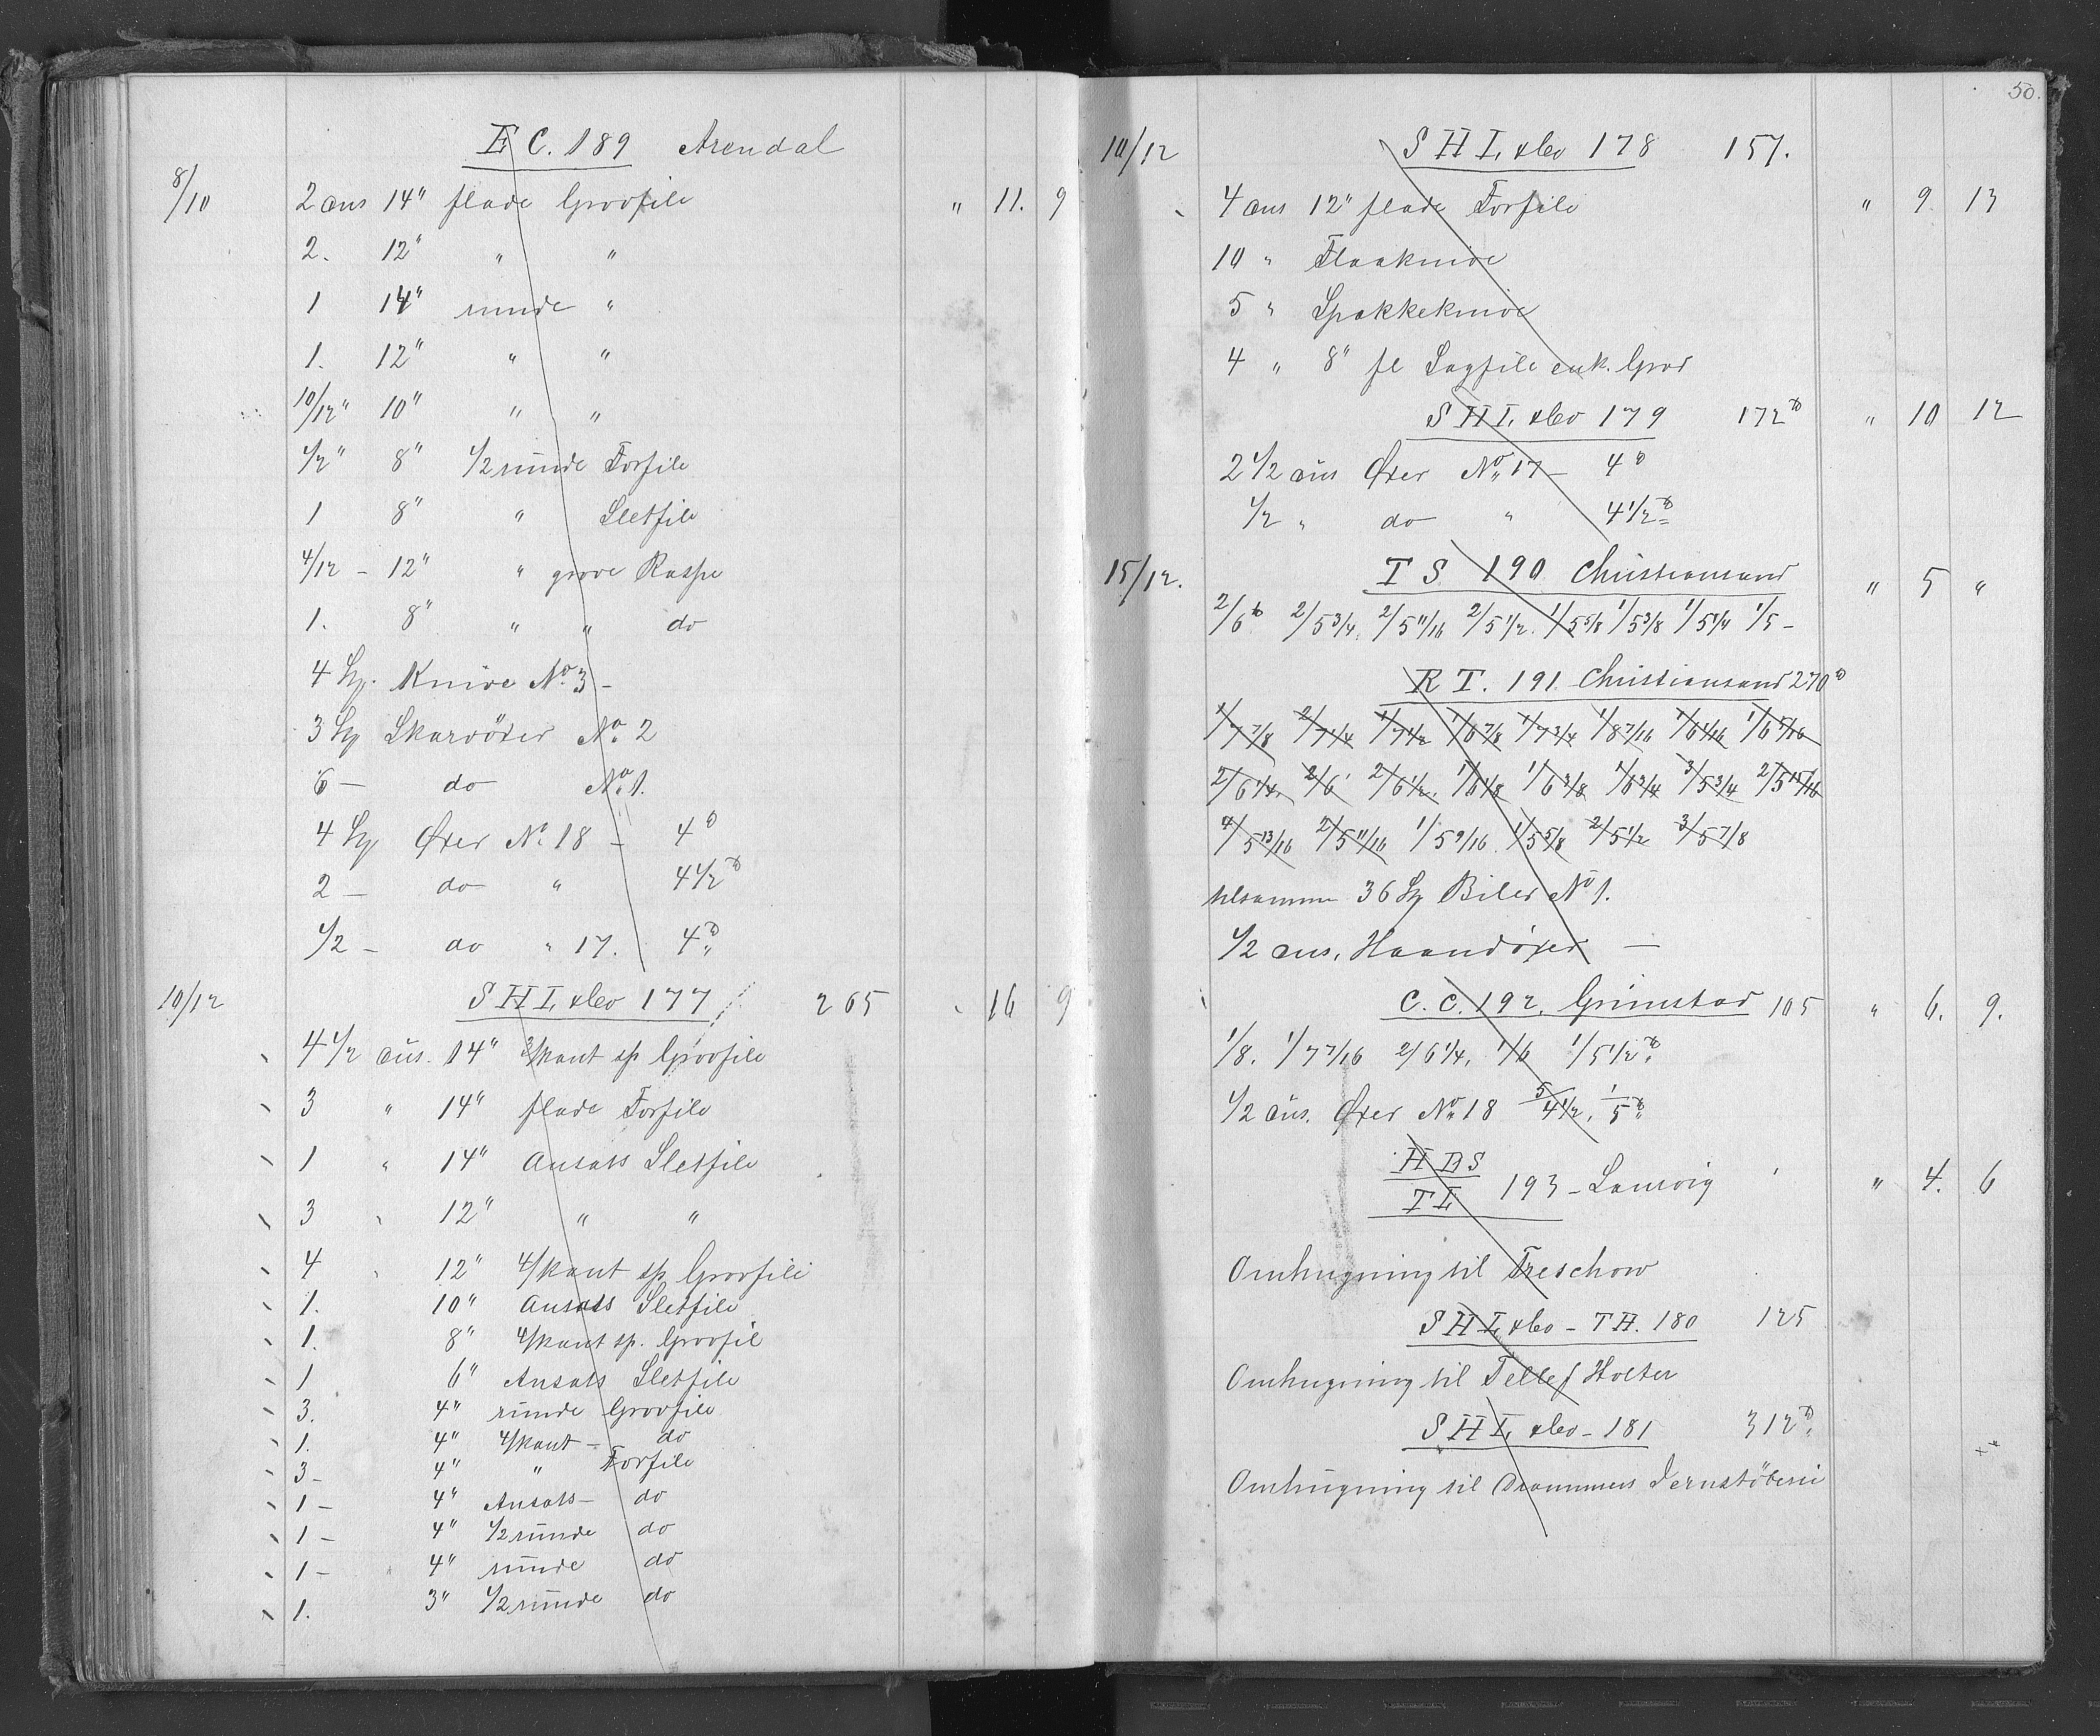 E C. 189 Arendal
8/10 2 dus 14" flade Grovfile " 11. 9
2. 12" " "
1 14" runde "
1. 12" " "
10/12" 10" " "
1/2" 8" 1/2 runde Forfile
1 8" " Sletfile
4/12 - 12" " grove Raspe
1. 8" " " do
4 Knive No. 3 -
3 Skarvöxer No. 2
6 - do No. 1.
4 Øxer No. 18 - 4
2 - do " 4 1/2
1/2 - do " 17. 4
10/12 S H L & Co 177 265 " 16 9
4 1/2 dus. 14" 3/kant sp Grovfile
3 " 14" flade Forfile
1 " 14" Ansats Sletfile
3 " 12" " "
4 " 12" 4/kant sp. Grovfile
1. 10" Ansats Sletfile
1. 8" 4/kant sp. Grovfil
1 6" Ansats Sletfile
3. 4" runde Grovfile
1. 4" 4/kant - do
3 - 4" " Forfile
1 - 4" Ansats - do
1 - 4" 1/2 runde do
1 - 4" runde do
1. 3" 1/2 runde do
50.
10/12 S H L & Co 178 157.
4 dus 12" flade Forfile " 9 13
10 " Flaaknive
5 " Spækkeknive
4 " 8" fl Sagfile enk. Grov
S H L & Co 179 172 " 10 12
2 1/2 dus Øxer No. 17 - 4
1/2 " do " 4 1/2
15/12. T S 190 Christiansand " 5 "
2/6 2/5 3/4. 2/5 11/16 2/5 1/2. 1/5 5/8 1/5 3/8 1/5 1/4 1/5 -
R T. 191 Christiansand 270
1/7 7/8 2/7 1/4 1/7 1/2 1/6 7/8 1/7 3/4 1/8 7/16 1/6 1/16 1/6 5/16
2/6 1/4. 2/6 2/6 1/2. 1/6 1/8 1/6 3/8 1/6 3/4 3/5 3/4 2/5 15/16
4/5 13/16 2/5 11/16 1/5 9/16. 1/5 5/8 2/5 1/2 3/5 7/8
tilsammen 36 Biler No 1.
1/2 dus. Haandöxer -
C. C. 192. Grimstad 105 " 6. 9.
1/8. 1/7 7/16 2/6 1/4. 1/6 1/5 1/2
1/2 dus. Øxer No. 18 5/4 1/2. 1/5
H B S
T L 193 - Laurvig " 4. 6
Omhugning til Treschow
S H L & Co - T H. 180 125
Omhugning til Tellef Holter
S H L & Co - 181 312
Omhugning til Drammens Jernstöberi